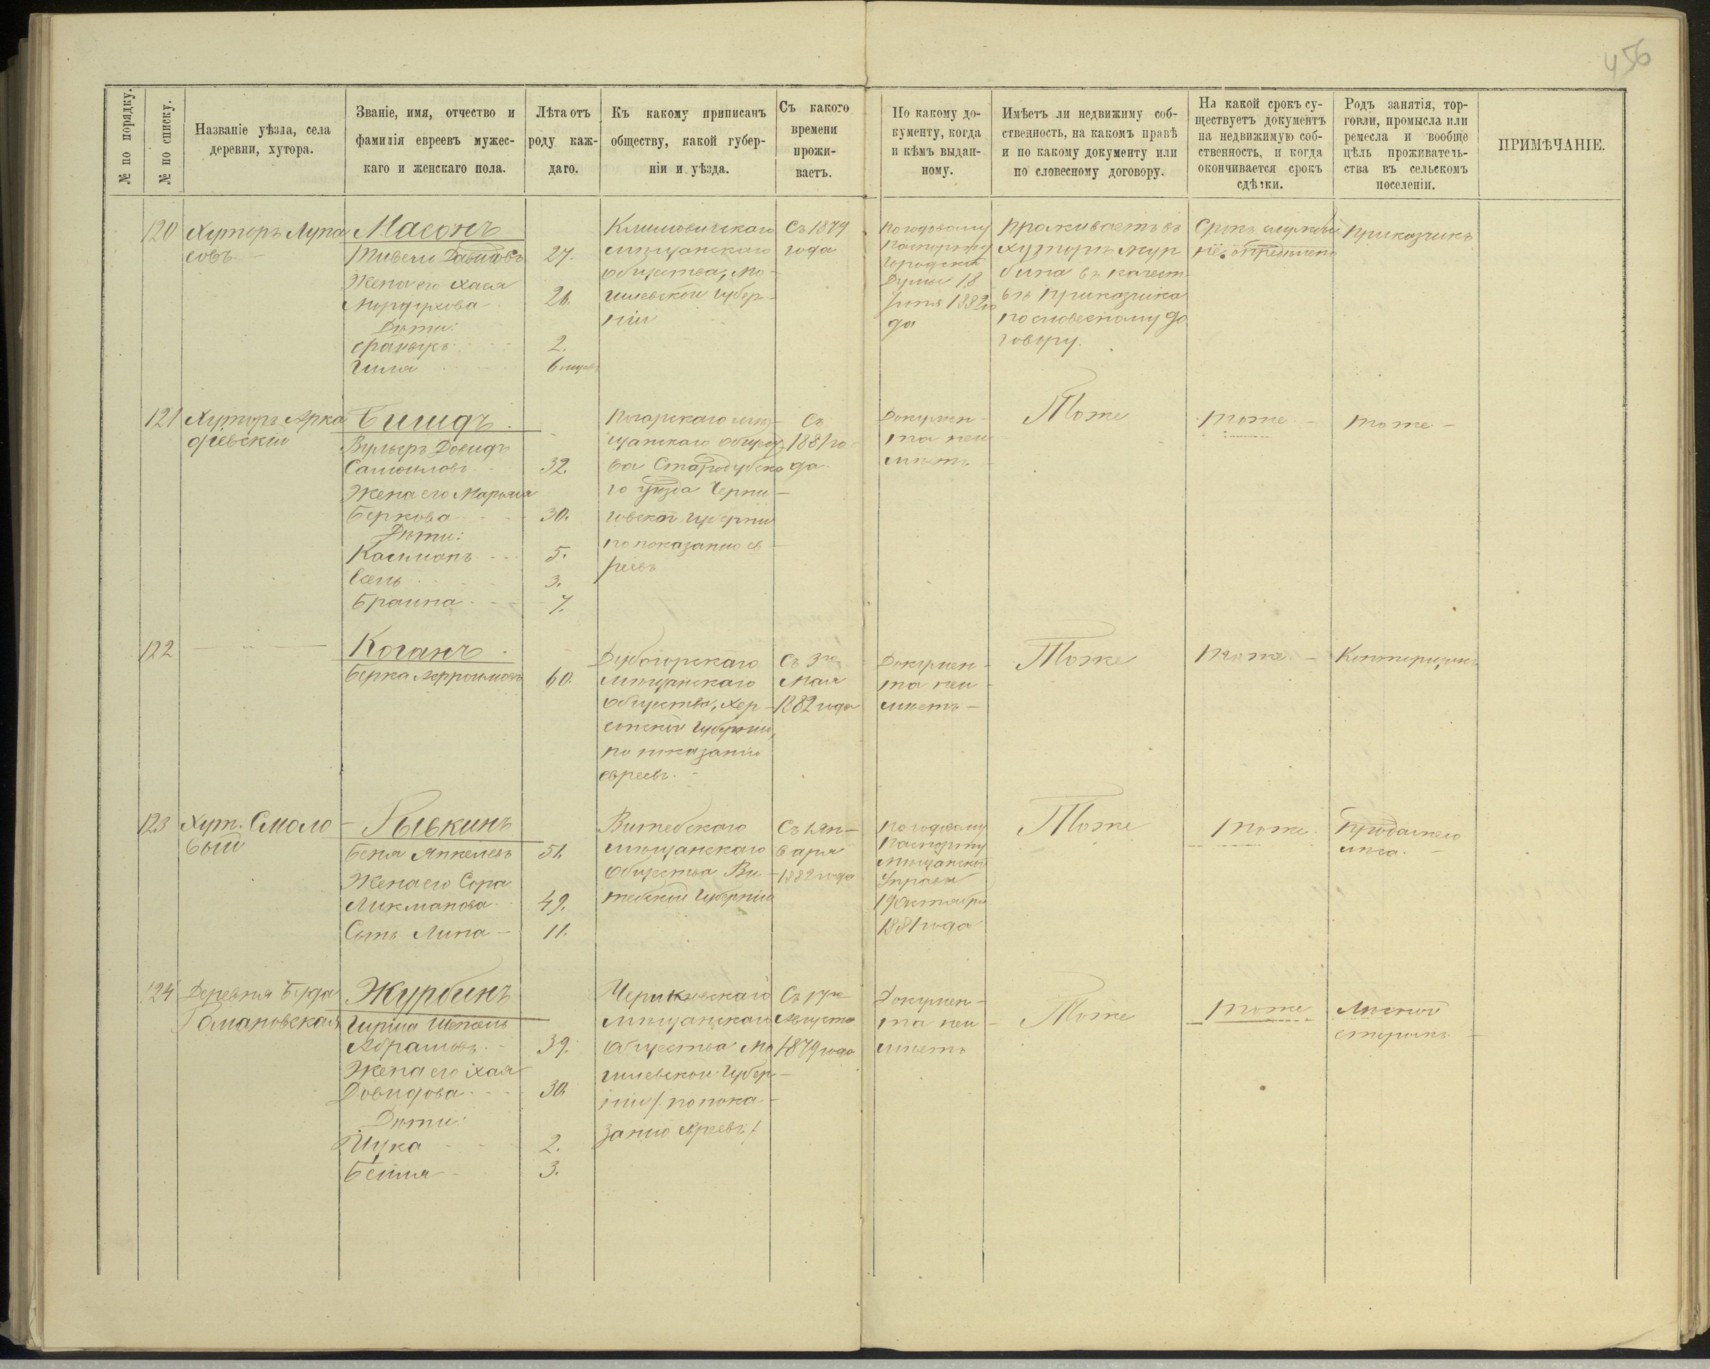 456
№ по порядку.
№ по списку.
Названіе уѣзда, села
деревни, хутора.
Званіе, имя, отчество и
фамилія евреевъ мужес-
каго и женскаго пола.
Лѣта отъ
роду каж-
даго.
Къ какому приписанъ
обществу, какой губер-
ніи и уѣзда.
Съ какого
времени
прожи-
ваетъ.
По какому до-
кументу, когда
и кѣмъ выдан-
ному.
Имѣетъ ли недвижиму соб-
ственность, на какомъ правѣ
и по какому документу или
по словесному договору.
На какой срокъ су-
ществуетъ документъ
на недвижимую соб-
ственность, и когда
окончивается срокъ
сдѣлки.
Родъ занятія, тор-
говли, промысла или
ремесла и вообще
цѣль проживатель-
ства въ сельскомъ
поселеніи.
ПРИМѢЧАНІЕ.
120
Хуторъ Лупа
совъ
Масонъ
Давидовъ 27.
Жена его Хася
Мордухова 26.
Дѣти:
2.
Гиля 6
Климовичскаго
мѣщанскаго
общества, Мо-
гилевской губер-
ніи
Съ 1879
года
По годовому
паспорту
Городской
Думы 18
1882 го
да
Проживаетъ въ
хуторѣ
въ качест-
вѣ приказчика
по словесному до
говору.
Срокъ
не опредѣленъ
Приказчикъ
121
Хуторъ Арка
дiевскiй
Вульфъ Довидъ
Самойловъ 32.
Жена его Марьяся
Беркова 30.
Дѣти:
Калманъ 5.
3.
Браина 7.
Погарскаго мѣ-
щанскаго общест
ва Стародубска
го уѣзда Черни-
говской губерніи
по показанію ев-
реевъ
Съ
1881 го-
да
Докумен-
та неи-
мѣетъ
Тоже
тоже
тоже
122
Коганъ
Берка 60.
мѣщанскаго
общества, Хер-
сонской губерніи,
по показанію
евреевъ.
Съ 3го
мая
1882 года
Докумен-
та неи-
мѣетъ
Тоже
тоже
Конторщикъ
123
Хут. Смоло-
вый
Рывкинъ
Беня Янкелевъ 51.
Жена его Сора
Ликманова 49.
Сынъ Липа 11.
Витебскаго
мѣщанскаго
общества Ви-
тебской губерніи
Съ 1 Ян-
варя
1882 года
По годовому
паспорту
Мѣщанской
Управы
19 Октября
1881 года
Тоже
тоже
лѣса.
124
Деревня Буда
Романовская
Журбинъ
Абрамовъ 39.
Жена его Хая
Довидова 30.
Дѣти:
2.
Бейля 3.
Чериковскаго
мѣщанскаго
общества Мо
гилевской губер-
ніи /по пока-
занію евреевъ/
Съ 17го
Августа
1879 года
Докумен-
та неи-
мѣетъ
Тоже
тоже
Лѣсной
сторожъ